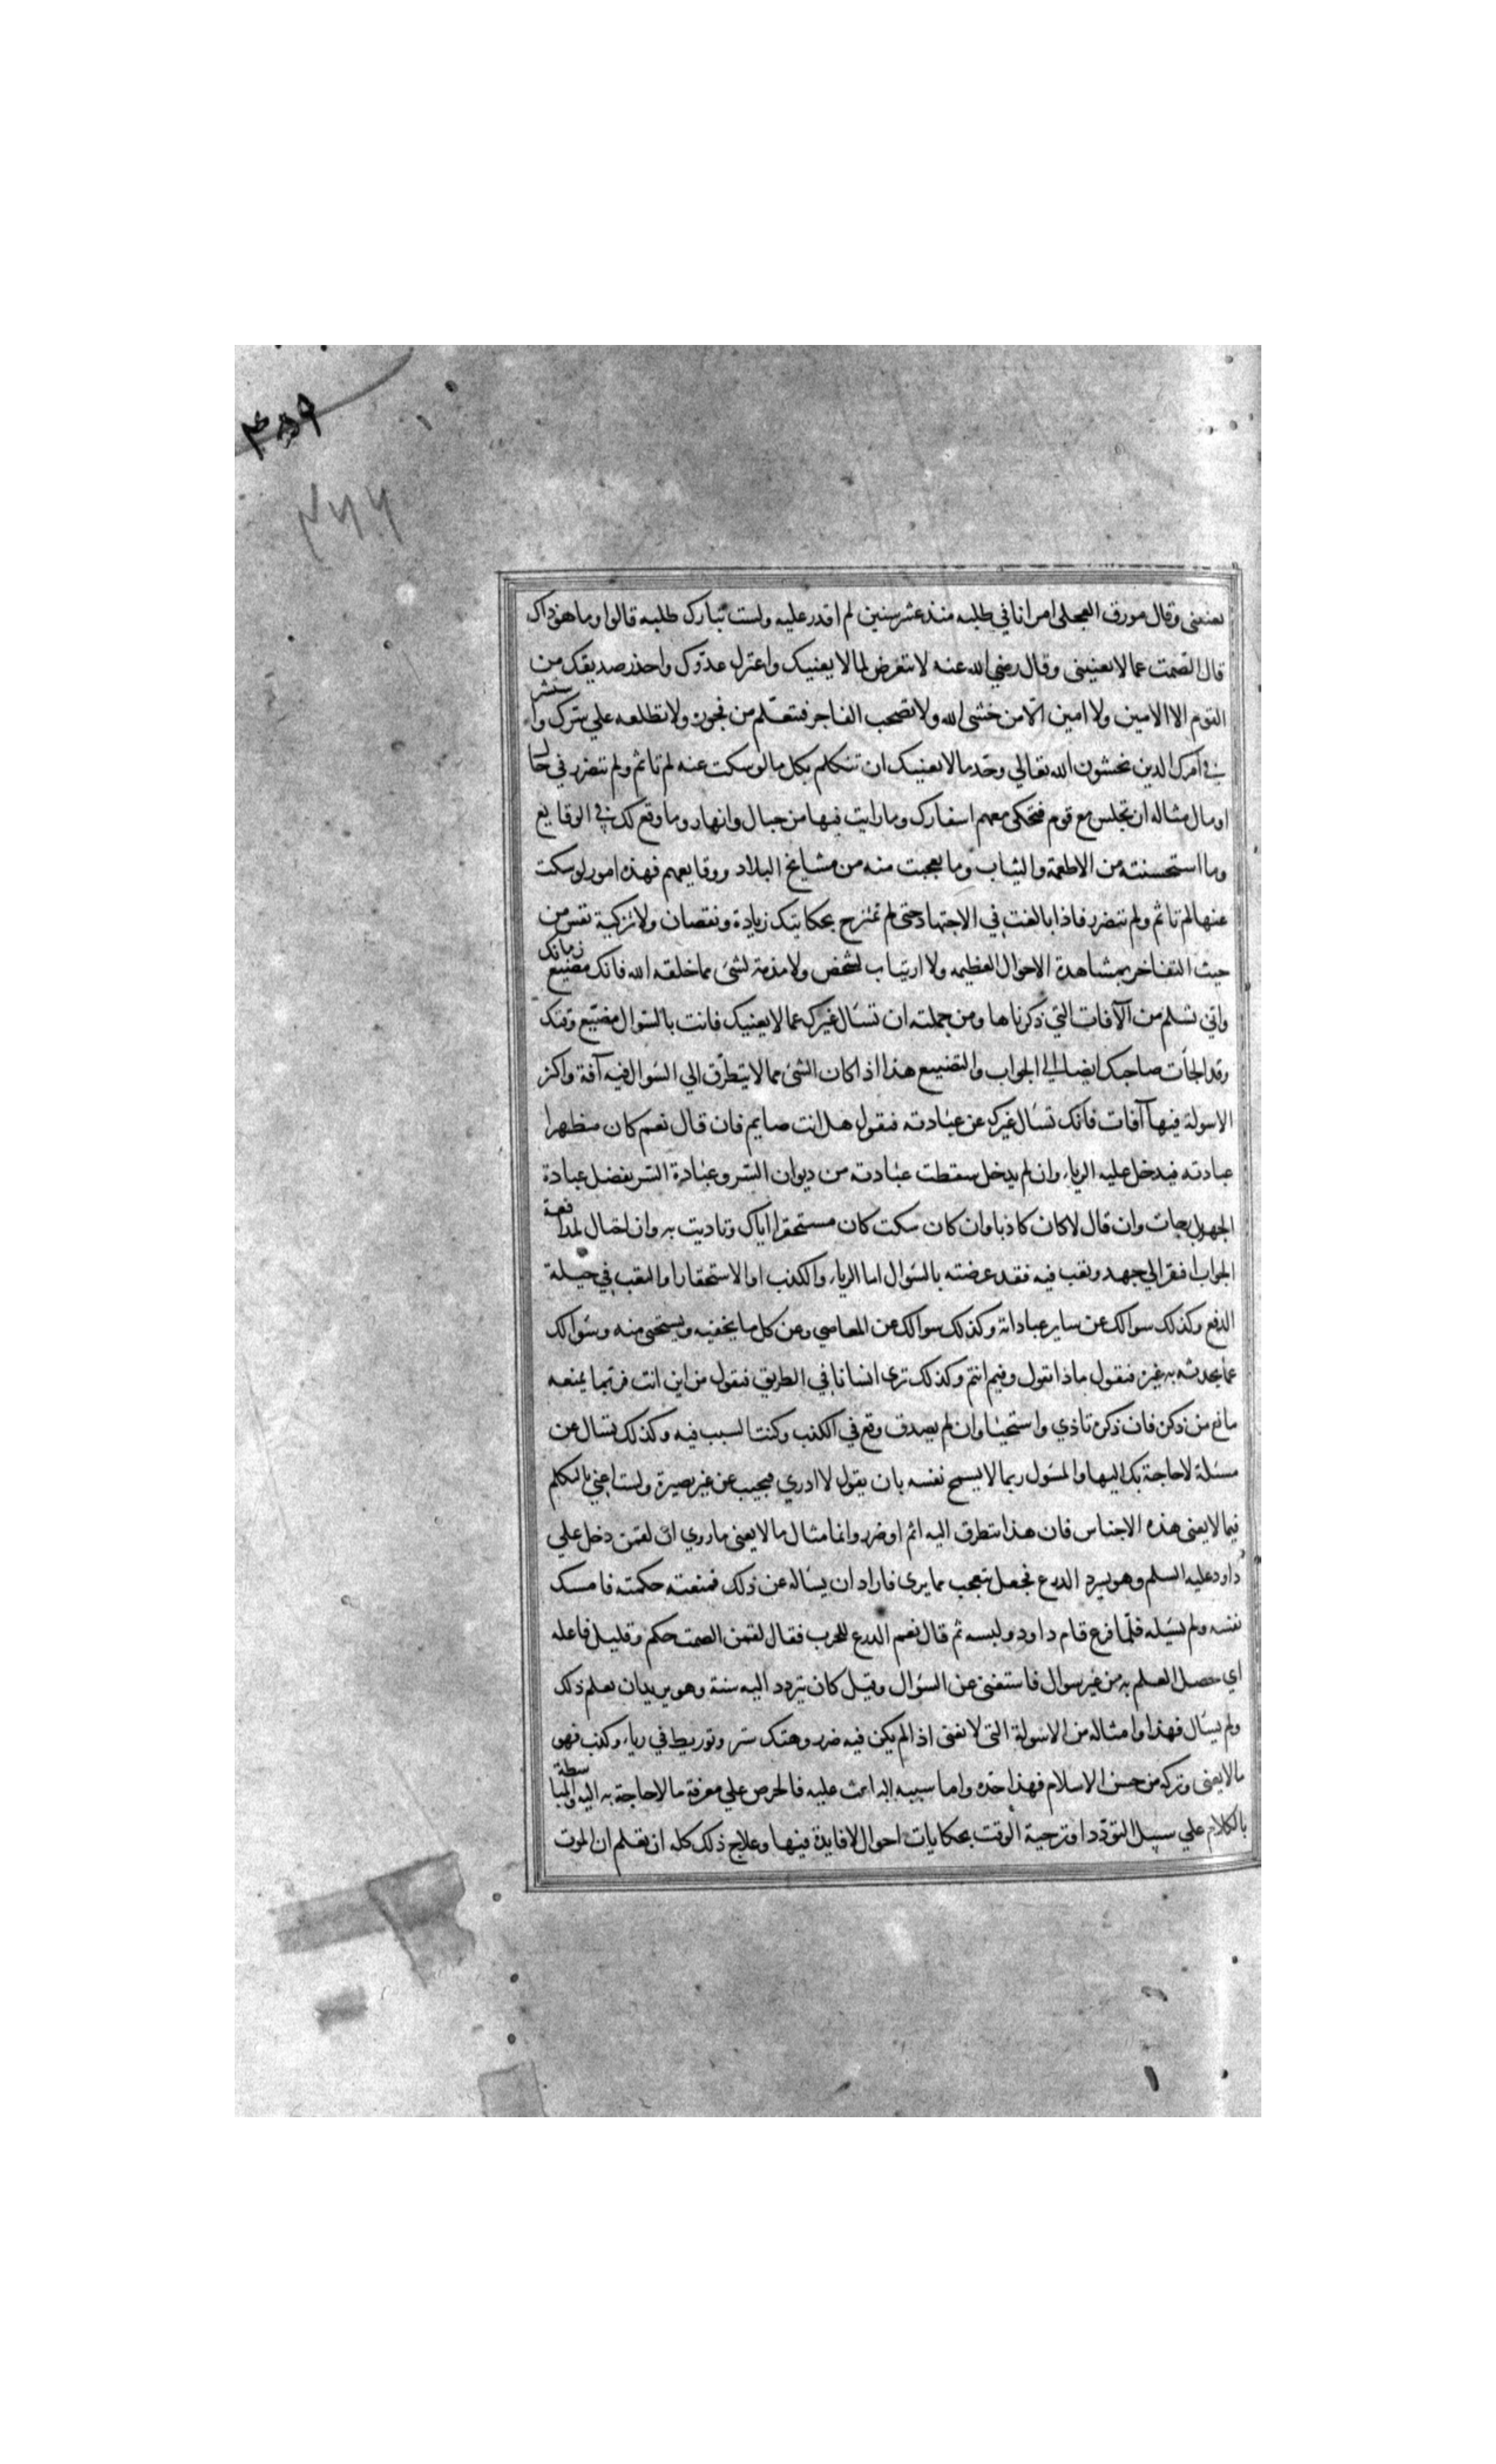 ۴۵۹
۲۶۶
يعنينى وقال مورق العجلى امر انا في طلبه منذ عشر سنين لم اقدر عليه ولست بتارك طلبه قالوا وما هو ذاك
قال الصمت عما لا يعنينى وقال رضي الله عنه لا تتعرض لما لا يعنيك واعتزل عدوّك واحذر صديقك من
القوم الا الامين ولا امين الّا من خشى الله ولا تصحب الفاجر فتتعلّم من فجوره ولا تطلعه علي سرّك واستشر
في امرك الذين يخشون الله تعالي وحدّ ما لا يعنيك ان تتكلم بكل ما لو سكت عنه لم تاثم ولم تتضرر في حال
او مال مثاله ان تجلس مع قوم فتحكى معهم اسفارك وما رايت فيها من جبال وانهار وما وقع لك في الوقايع
وما استحسنته من الاطعمة والثياب وما تعجبت منه من مشايخ البلاد ووقايعهم فهذه امور لو سكت
عنها لم تاثم ولم تتضرر فاذا بالغت في الاجتهاد حتى لم تمتزح بحكايتك زيادة ونقصان ولا تزكية نفس من
حيث التفاخر بمشاهدة الاحوال العظيمه ولا اغتياب لشخص ولا مذمة لشئ مما خلقه الله فانك مضيع زمانك
واني تسلم من الآفات التي ذكرناها ومن جملته ان تسال غيرك عما لا يعنيك فانت بالسّوال مضيّع وقتك
وقد الجأت صاحبك ايضا الي الجواب والتضييع هذا اذا كان الشئ مما لا يتطرّق الي السّوال فيه آفة واكثر
الاسولة فيها آفات فانك تسال غيرك عن عبادته فتقول هل انت صايم فان قال نعم كان مظهرا
عبادته فيدخل عليه الرياء وان لم يدخل سقطت عبادته من ديوان السّر وعبادة السّر يفضل عبادة
الجهر بدرجات وان قال لا كان كاذبا وان كان سكت كان مستحقرا اياك وتاديت به وان احتال لمدافعة
الجواب افتقر الي جهد وتعب فيه فقد عرضته بالسّوال اما الرياء والكذب او الاستحقار او التعب في حيلة
الدفع وكذلك سوالك عن ساير عباداته وكذلك سوالك عن المعاصي وعن كل ما يخفيه ويستحى منه وسوالك
عما يحدث به غيره فتقول ماذا تقول وفيم انتم وكذلك ترى انسانا في الطريق فتقول من اين انت فربّما يمنعه
مانع من ذكره فان ذكره تاذي واستحيا وان لم يصدق وقع في الكذب وكنت السبب فيه وكذلك تسال عن
مسئلة لا حاجة بك اليها والمسول ربما لا يسمح نفسه بان يقول لا ادري فيجيب عن غير بصيرة ولست اعني بالتكلم
فيما لا يعنى هذه الاجناس فان هذا يتطرق اليه اثم او ضرر وانما مثال ما لا يعنى ما روي ان لقمن دخل علي
داود عليه السلم وهو يسرد الدرع فجعل يتعجب مما يرى فاراد ان يساله عن ذلك فمنعته حكمته فامسك
نفسه ولم يسئله فلمّا فرغ قام داود ولبسه ثم قال نعم الدرع للحرب فقال لقمن الصمت حكم وقليل فاعله
اي حصل العلم به من غير سوال فاستغنى عن السّوال وقيل كان يتردد اليه سنة وهو يريد ان يعلم ذلك
ولم يسال فهذا وامثاله من الاسولة التى لا تعنى اذا لم يكن فيه ضرر وهتك ستر وتوريط في رياء وكذب فهو
ما لا يعنى وتركه من حسن الاسلام فهذا حدّه واما سببه الباعث عليه فالحرص علي معرفة ما لا حاجة به اليه والمباسطة
بالكلام علي سبيل التودّد او ترجية الوقت بحكايات احوال لا فايدة فيها وعلاج ذلك كله ان يعلم ان الموت